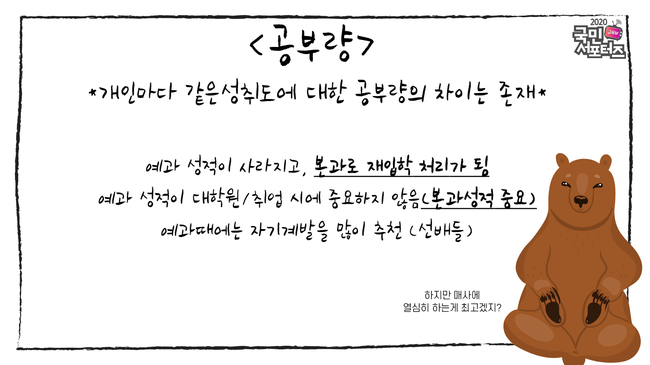 2020
국민
서포터즈
<공부량>
*개인마다 같은성취도에 대한 공부량의 차이는 존재*
예과 성적이 사라지고, 본과로 재입학 처리가 됨
예과 성적이 대학원/취업 시에 중요하지 않음(본과성적 중요)
예과때에는 자기계발을 많이 추천 (선배들)
하지만 매사에
열심히 하는게 최고겠지?